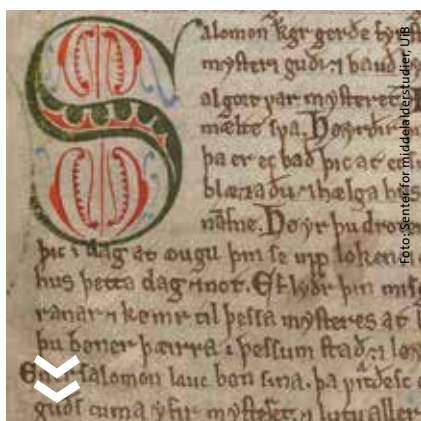 Salomon kgr gerðe fyr
mysteri guði. ⁊ bauð
algort var mysteret
mælte sva. Høyrðu
þa er ec bað þic at ec
blæzaðu ⁊ hælga hus
nafne. Høyr þu drot
þic i dag at augu þin se upp loken
hus þetta dag ⁊ not. Ef lyðr þin misg
ranar ⁊ kemr til þessa mysteres at b
þu bøner þæirra i þessum stað. ⁊ løy
En er salomon lauc bøn sina. þa
guðs cuma yfir mysteret. ⁊ lutu aller
Foto: Senter for middelalderstudier, UiB